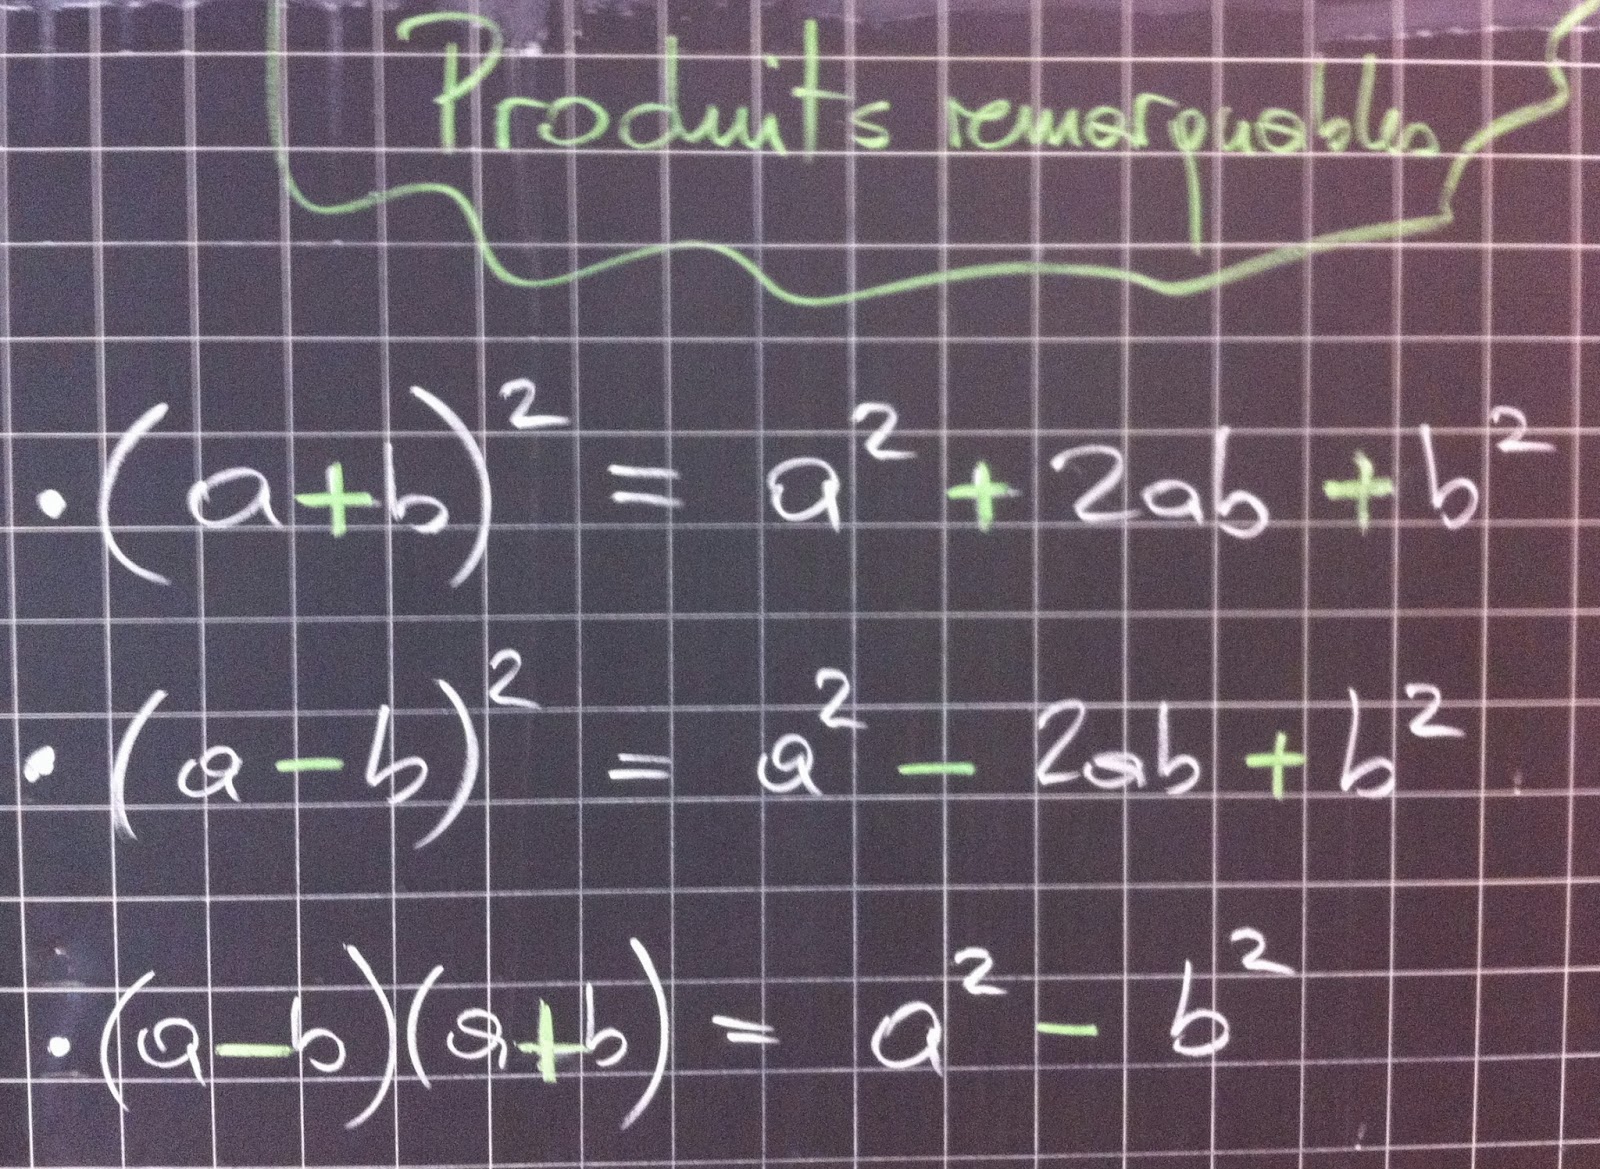 Produits remarquables
• (a+b)² = a² + 2ab + b²
• (a - b)² = a² - 2ab + b²
• (a-b)(a+b) = a² - b²